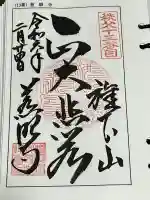 (13番) 慈眼寺
秩父十三番
旗下山
大悲殿
令和六年
二月
慈眼寺